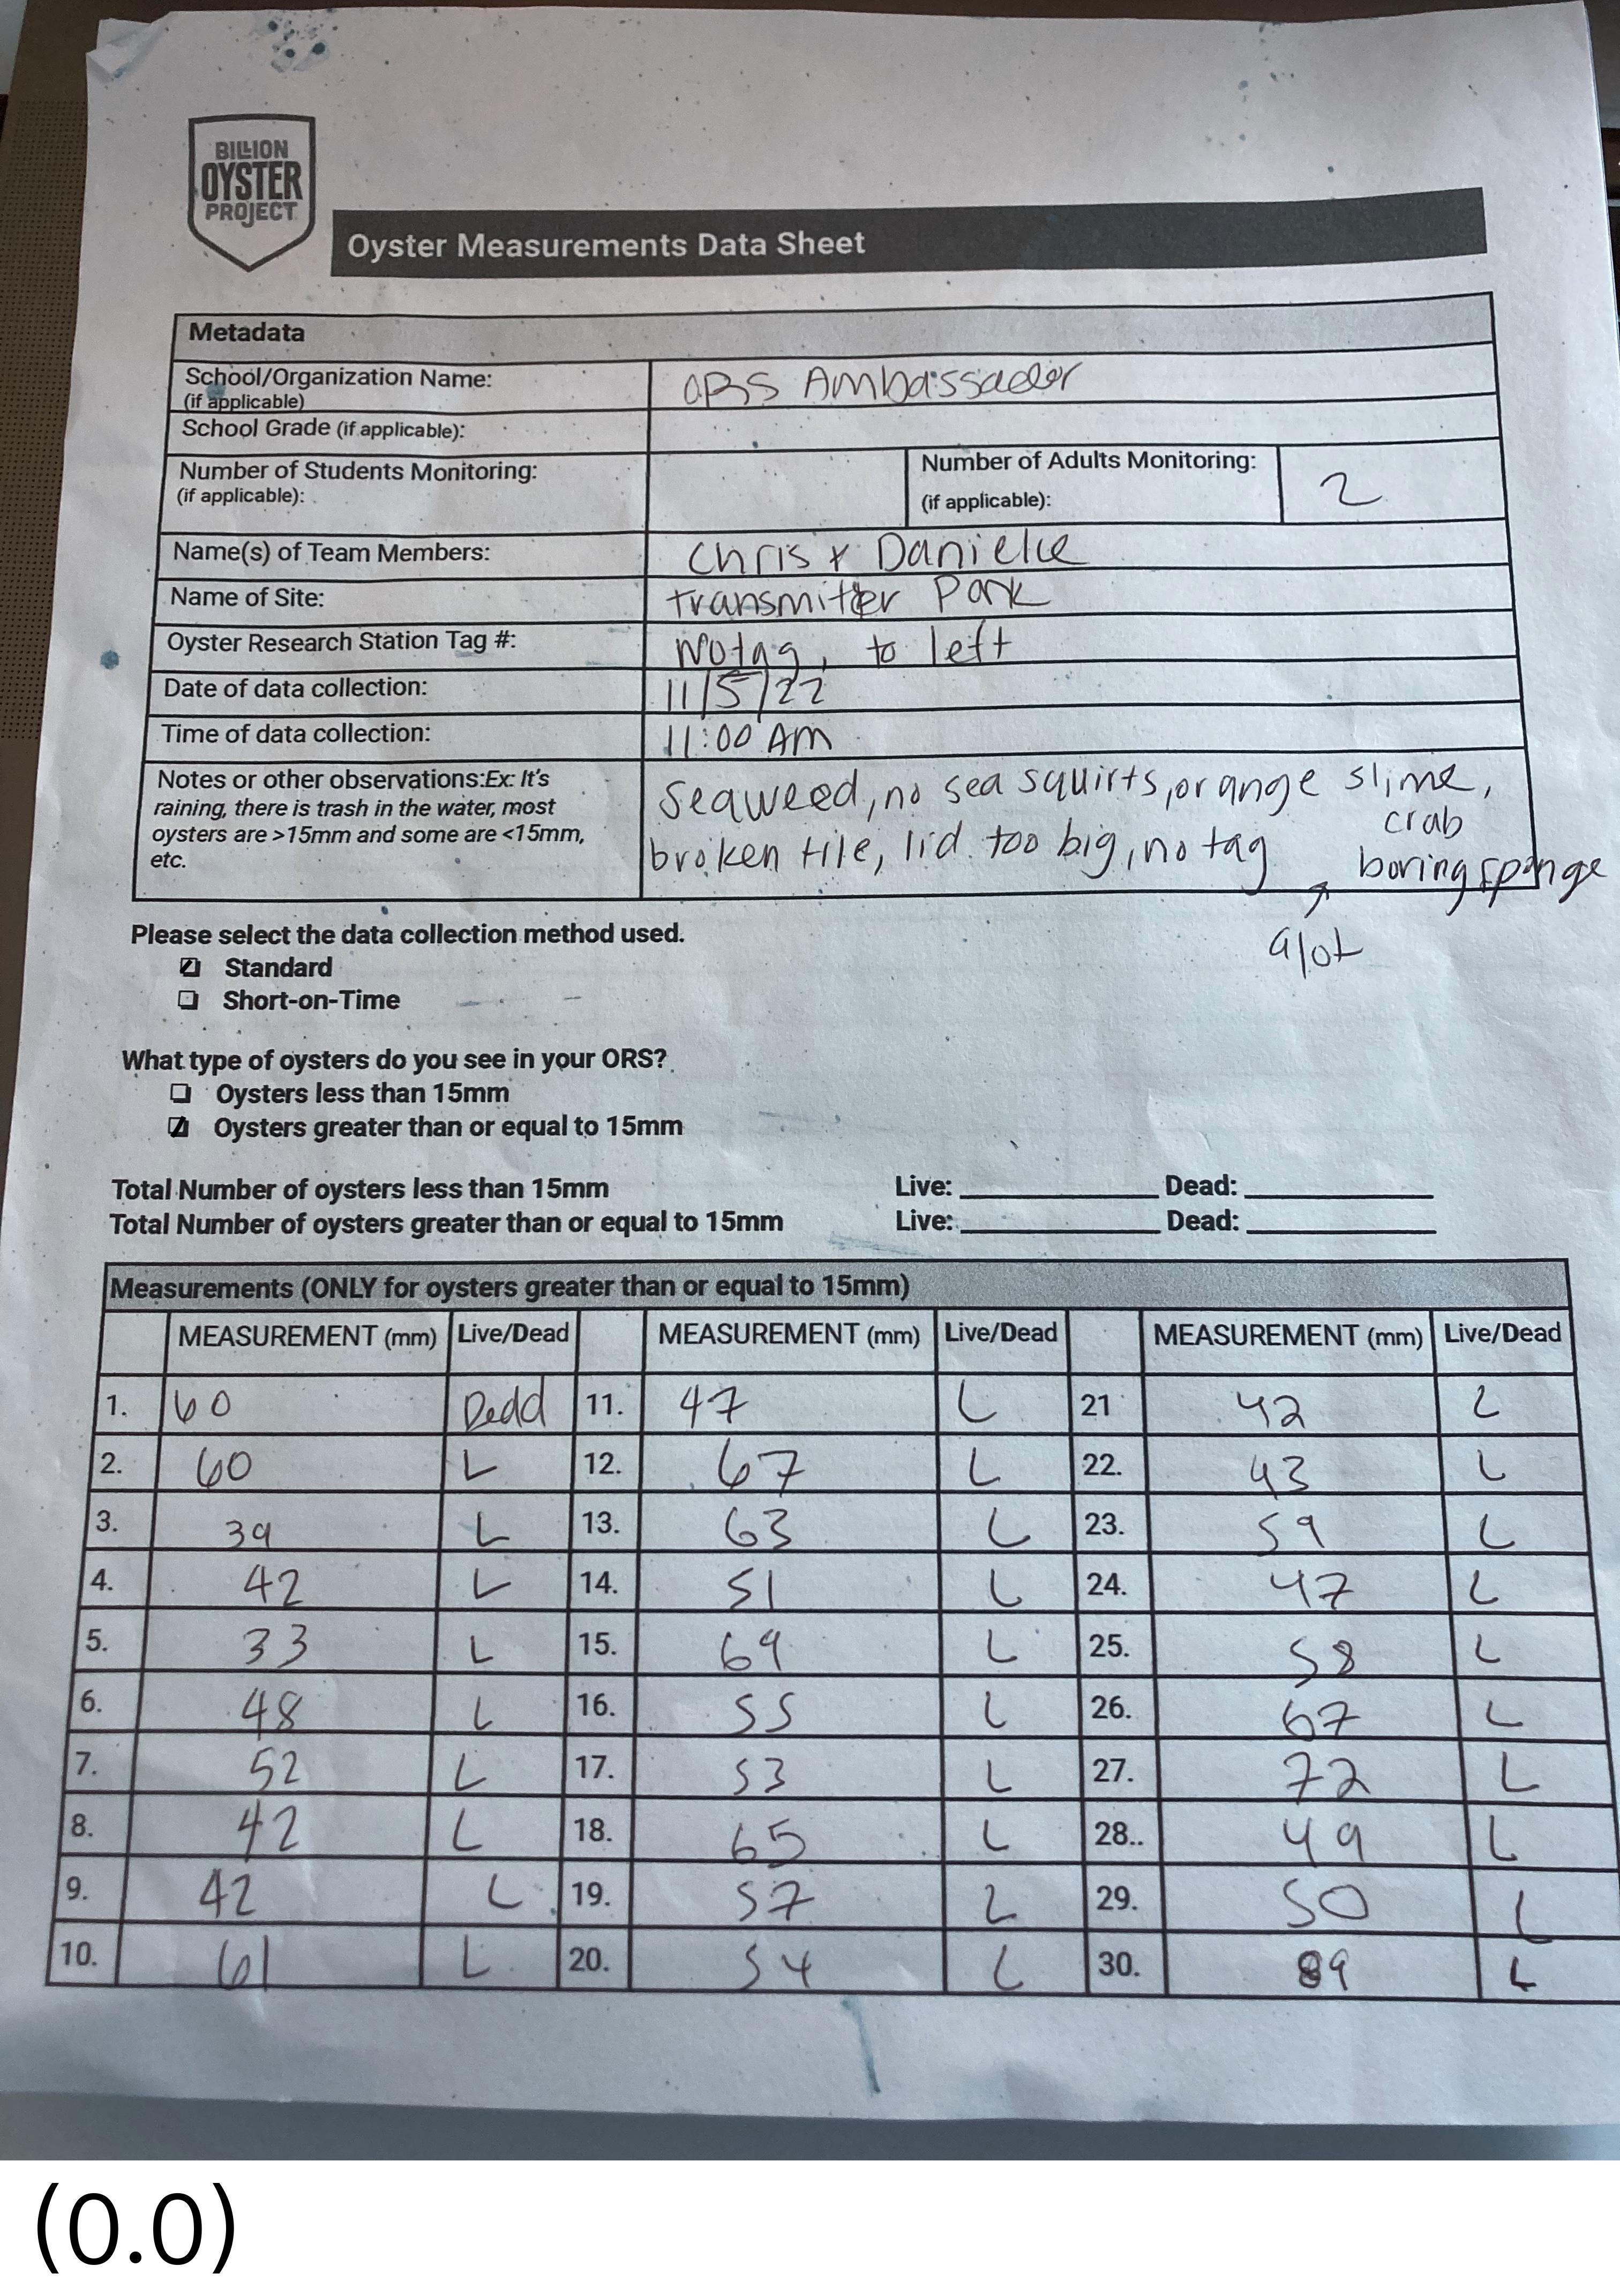 BILLION
OYSTER
PROJECT
Oyster Measurements Data Sheet
Metadata
School/Organization Name:
(if applicable)
ORS Ambassador
School Grade (if applicable):
Number of Students Monitoring:
(if applicable):
Number of Adults Monitoring:
(if applicable):
2
Name(s) of Team Members:
Chris & Danielle
Name of Site:
Transmitter Park
Oyster Research Station Tag #:
No tag, to left
Date of data collection:
11/5/22
Time of data collection:
11:00 AM
Notes or other observations:Ex: It's
raining, there is trash in the water, most
oysters are >15mm and some are <15mm,
etc.
Seaweed, no sea squirts, orange slime,
crab
broken tile, lid too big, no tag
boring sponge
a lot
Please select the data collection method used.
Standard
Short-on-Time
What type of oysters do you see in your ORS?
Oysters less than 15mm
Oysters greater than or equal to 15mm
Total Number of oysters less than 15mm Live: Dead:
Total Number of oysters greater than or equal to 15mm Live: Dead:
Measurements (ONLY for oysters greater than or equal to 15mm)
MEASUREMENT (mm) Live/Dead MEASUREMENT (mm) Live/Dead MEASUREMENT (mm) Live/Dead
1. 60 Dead 11. 47 L 21 42 L
2. 60 L 12. 67 L 22. 43 L
3. 39 L 13. 63 L 23. 59 L
4. 42 L 14. 51 L 24. 47 L
5. 33 L 15. 69 L 25. 58 L
6. 48 L 16. 55 L 26. 67 L
7. 52 L 17. 53 L 27. 72 L
8. 42 L 18. 65 L 28.. 49 L
9. 42 L 19. 57 L 29. 50 L
10. 61 L 20. 54 L 30. 89 L
(0.0)